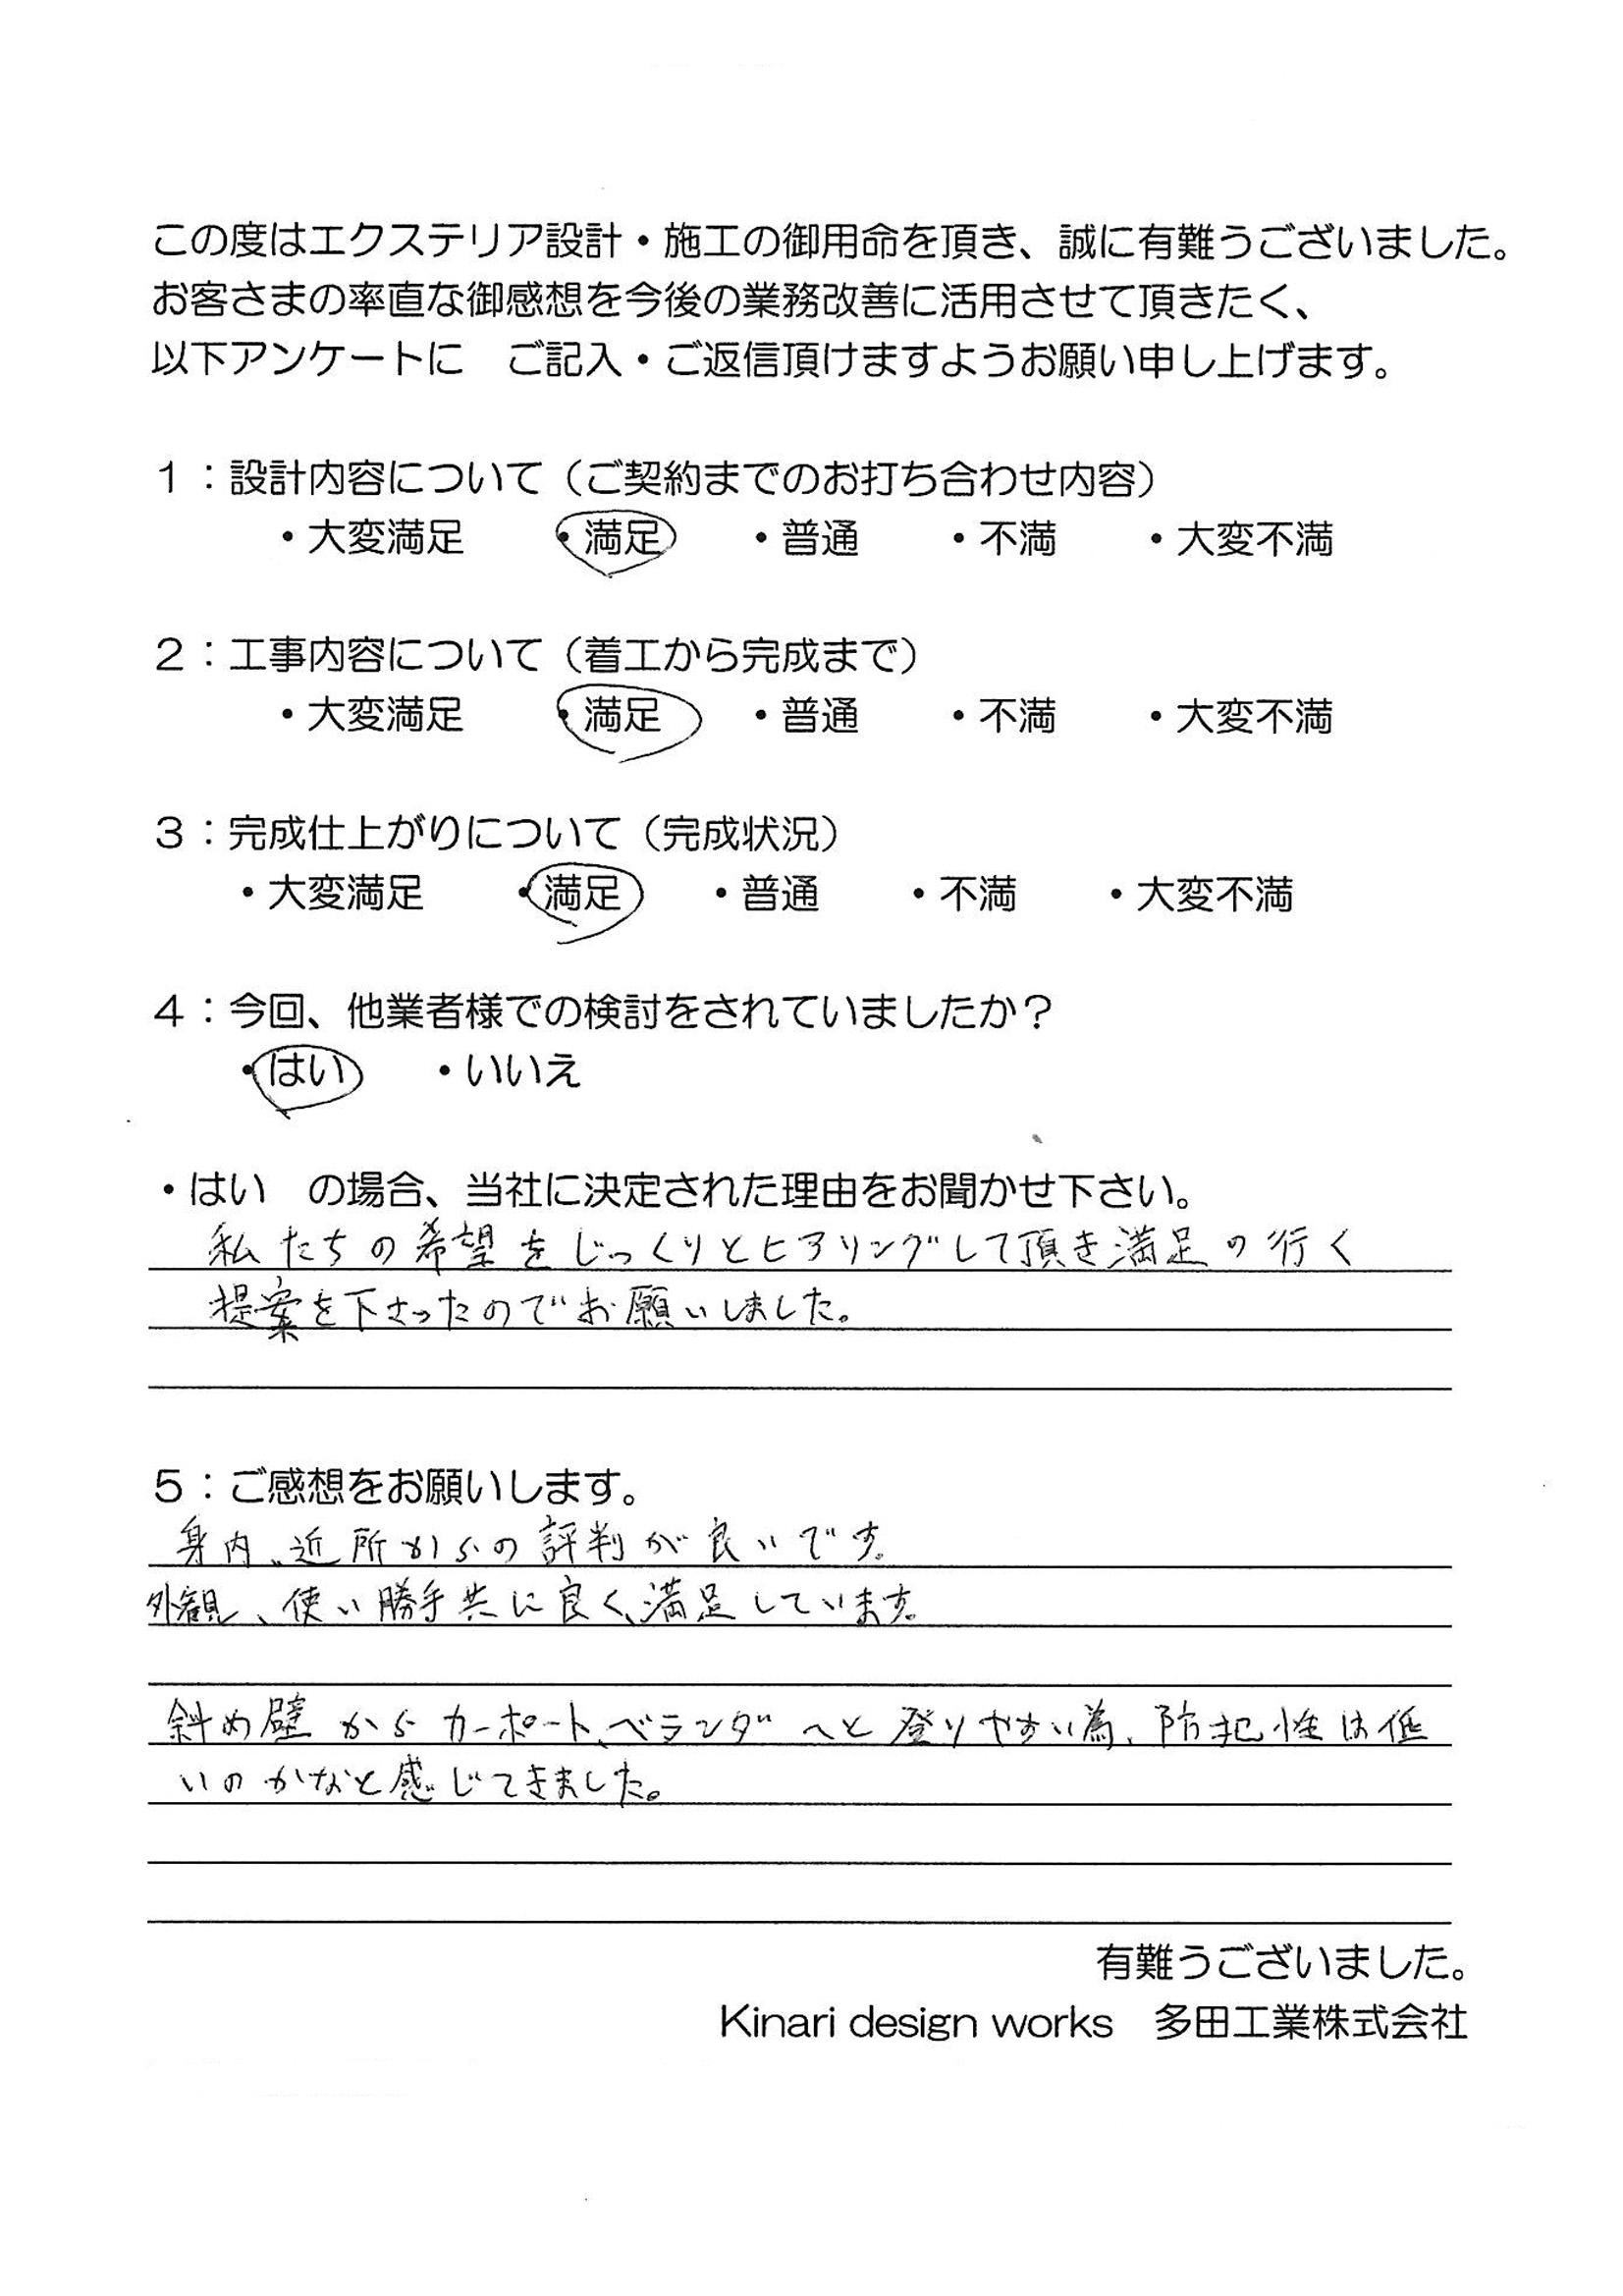 この度はエクステリア設計・施工の御用命を頂き、誠に有難うございました。
お客さまの率直な御感想を今後の業務改善に活用させて頂きたく、
以下アンケートに　ご記入・ご返信頂けますようお願い申し上げます。
１：設計内容について（ご契約までのお打ち合わせ内容）
・大変満足　・満足　・普通　・不満　・大変不満
２：工事内容について（着工から完成まで）
・大変満足　・満足　・普通　・不満　・大変不満
３：完成仕上がりについて（完成状況）
・大変満足　・満足　・普通　・不満　・大変不満
４：今回、他業者様での検討をされていましたか？
・はい　・いいえ
・はい　の場合、当社に決定された理由をお聞かせ下さい。
私たちの希望をじっくりとヒアリングして頂き満足の行く
提案を下さったのでお願いしました。
５：ご感想をお願いします。
身内、近所からの評判が良いです。
外観、使い勝手共に良く、満足しています。
斜め壁からカーポート、ベランダへと登りやすい為、防犯性は低
いのかなと感じてきました。
有難うございました。
Kinari design works　多田工業株式会社